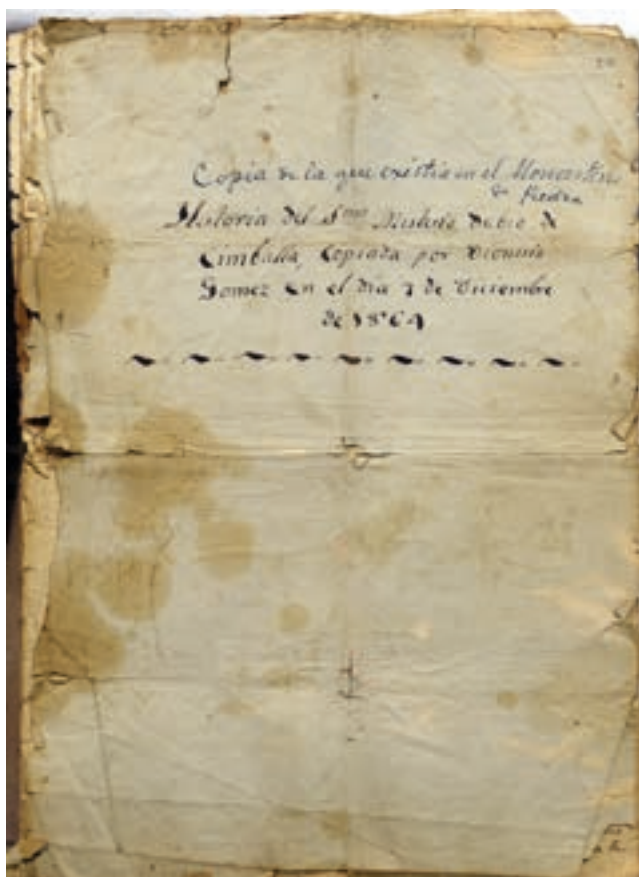 Copia de la que existia en el Monasterio
de Piedra
Historia del Smo Misterio Dubio de
Cimballa, Copiada por Dionisio
Gomez en el dia 7 de Diciembre
de 1864